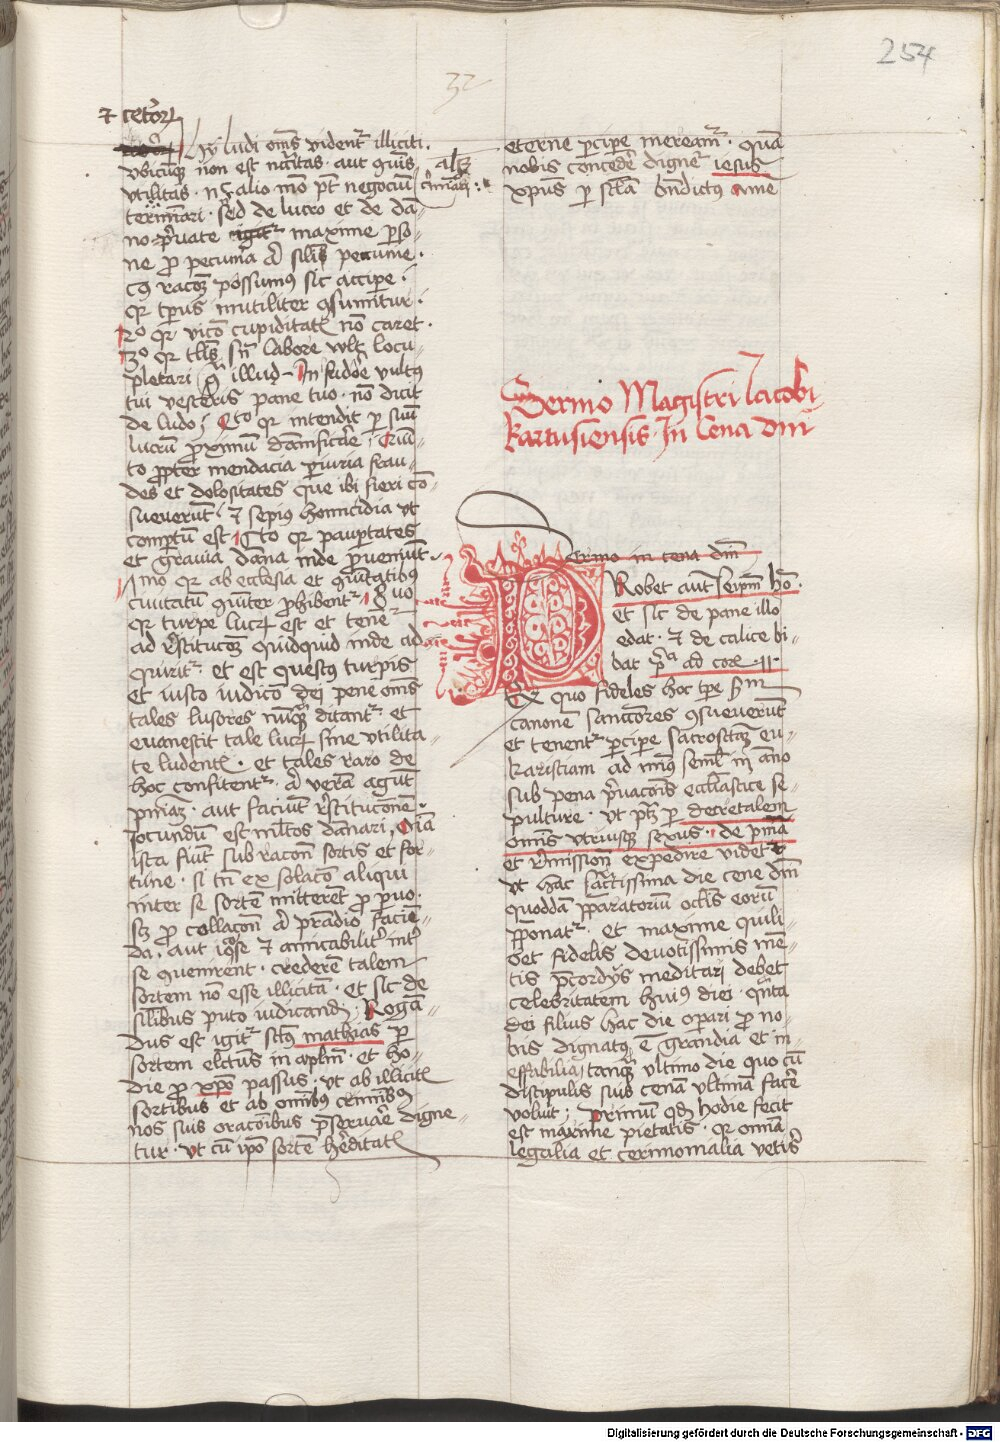 254
32
⁊ cetor
Isti ludi om̄s vident᷑ illiciti .
vbicūqꝫ non est nc̄citas . aut qm̄is
vtilitas . n alio mō pt negociū
terminari . Sed de lucro et de dā-
no p̄uate maxime p̄so-
ne pro pecunia vl silib pecunie .
qr tp̄us inutiliter ꝯsumitur .
2o qr vicio cupiditatꝭ nō caret .
3o qr sn̄ labore vlt locu-
pletari illud In sudore vultus
tui vesceris pane tuo . nō dicit
de ludo . qr intendit per suū
lucrū ꝓximū dāmficare .
to ꝓpter mendacia ꝑiuria frau-
des et dolositates que ibi fieri cō-
sueuerūt . ⁊ sepius homicidia vt
comptū est qr pauꝑtates
et grauia dāna inde ꝓueniūt .
mo qr ab ecclesia et
ciuitatū ꝓhibent᷑
qr turpe lucrū est et tene᷑
ad rescōez quidquid inde ad
quirit᷑ . et est questus turpis
et iusto iudicio dei pene om̄s
tales lusores nūqꝫ ditant᷑ et
euanescit tale lucrū sine vtilita-
te ludentꝭ . et tales raro de
hoc confitent᷑ . vl verā agūt
pn̄iaꝫ . aut faciūt restitucōnem .
Iocundū est ml̄tos dānari
ista fiūt sub racōe sortis et for-
tune . si tn̄ ex solacio aliqui
inter se sortē mitterēt pro paruo .
pro collacōn vl prādio facien-
da . aut iocose ⁊ amicabilit᷑ int᷑
se quenirent . crederem talem
sortem nō esse illicitā . et sic de
silibus puto iudicandū . Rogā-
dus est igit᷑ scūs mathias per
sortem electus in aplm̄ . et ho-
die pro xpō passus . vt ab illicitꝭ
sortibus et ab omibus criminibus
nos suis oracōibus preseruare digne-
tur . vt cū ipō sortē hereditatꝭ
eterne ꝑcipe mereamr . quā
nobis concedere digner iesus
xpūs per scla bn̄dictus amē
Sermo Magistri Iacobi
kartusiensis In Cena dn̄i
Sermo in cena dn̄i
Probet autē seipm̄ hō .
et sic de pane illo
edat . ⁊ de calice bi-
bat pa ad cor .11.
Ex quo fideles hoc tpe sm̄
canonē sanctiones ꝯsueuerūt
et tenent᷑ ꝑcipe sacrosctāꝫ eu-
karistiam ad minus semel in āno
sub pena priuacōis ecclīastice se-
pulture . vt ptꝫ per decretalem
omīs vtriusqꝫ sexus . de pn̄ia
et remissionī expedire videt᷑
vt hac sacratissima die cene dn̄i
quoddā ꝑparatoriū oclis eorū
ꝓponat᷑ . et maxime quili-
bet fidelis deuotissimis men-
tis precordijs meditari debet
celebritatem huius diei . qn̄ta
dei filius hac die oꝑari pro no-
bis dignatus ē grandia et in-
effabilia tanqꝫ vltimo die quo cū
discipulis suis cenā vltimā facere
voluit ; Primū qd hodie fecit
est maxime pietatis . qr omnia
legalia et cerimonialia veteris
Digitalisierung gefördert durch die Deutsche Forschungsgemeinschaft - DFG